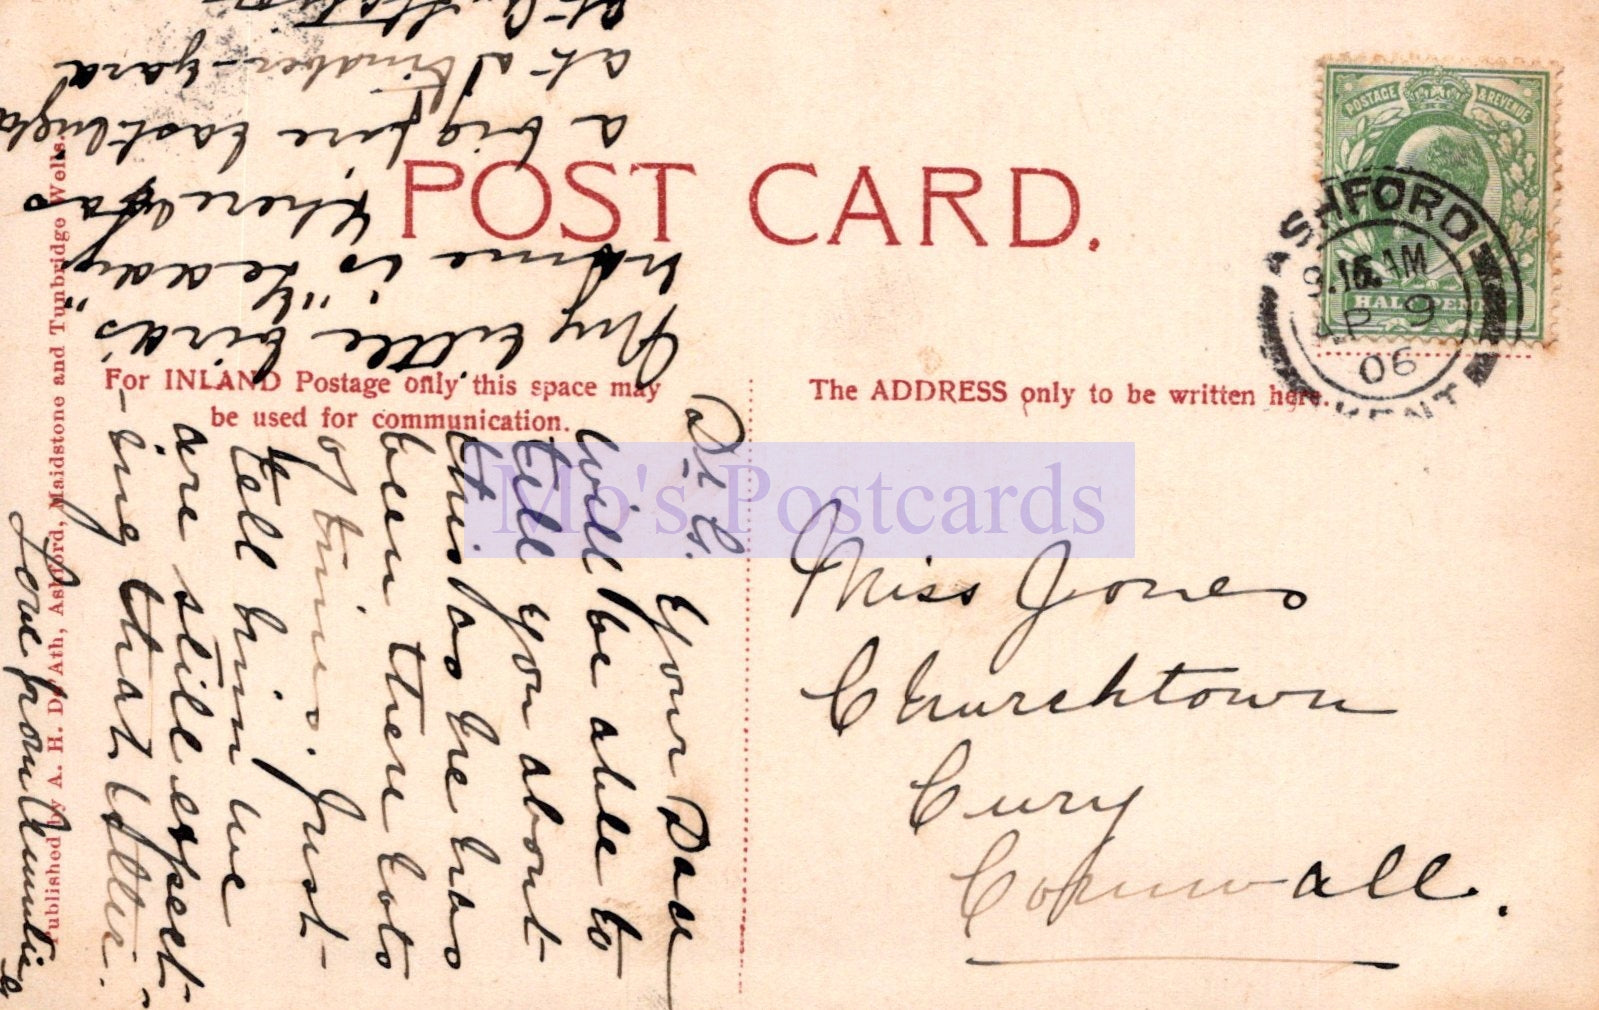 POST CARD.
For INLAND Postage only this space may
be used for communication.
The ADDRESS only to be written here.
Published by A. H. De'Ath, Ashford, Maidstone and Tunbridge Wells.
POSTAGE & REVENUE
HALF PENNY
ASHFORD
9.15 AM
AP 9
06
KENT
Mo's Postcards
Miss Jones
Churchtown
Cury
Cornwall.
Dr G. Your Dad
will be able to
tell you about
this as he has
been there lots
of times. Just
tell him we
are still expect-
-ing that letter.
Love from Auntie
My little "birds"
name is "Teady"
there was
a big fire last night
at a timber-yard
at